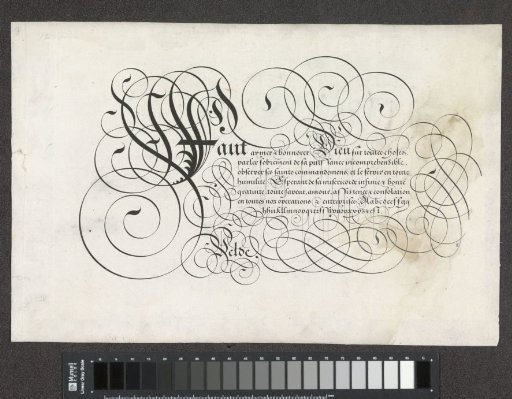 Faut aymer & honnorer Dieu sur toutes choses,
parler sobrement de sa puissance incomprehensible,
observer ses saints commandemens, et le servir en toute
humilité. Esperant de sa misericorde infinie & bonté
gratuite, toute faveur, amour, assistence & consolation
en toutes nos operations & entreprises. Aabcdeffgg
Velde.